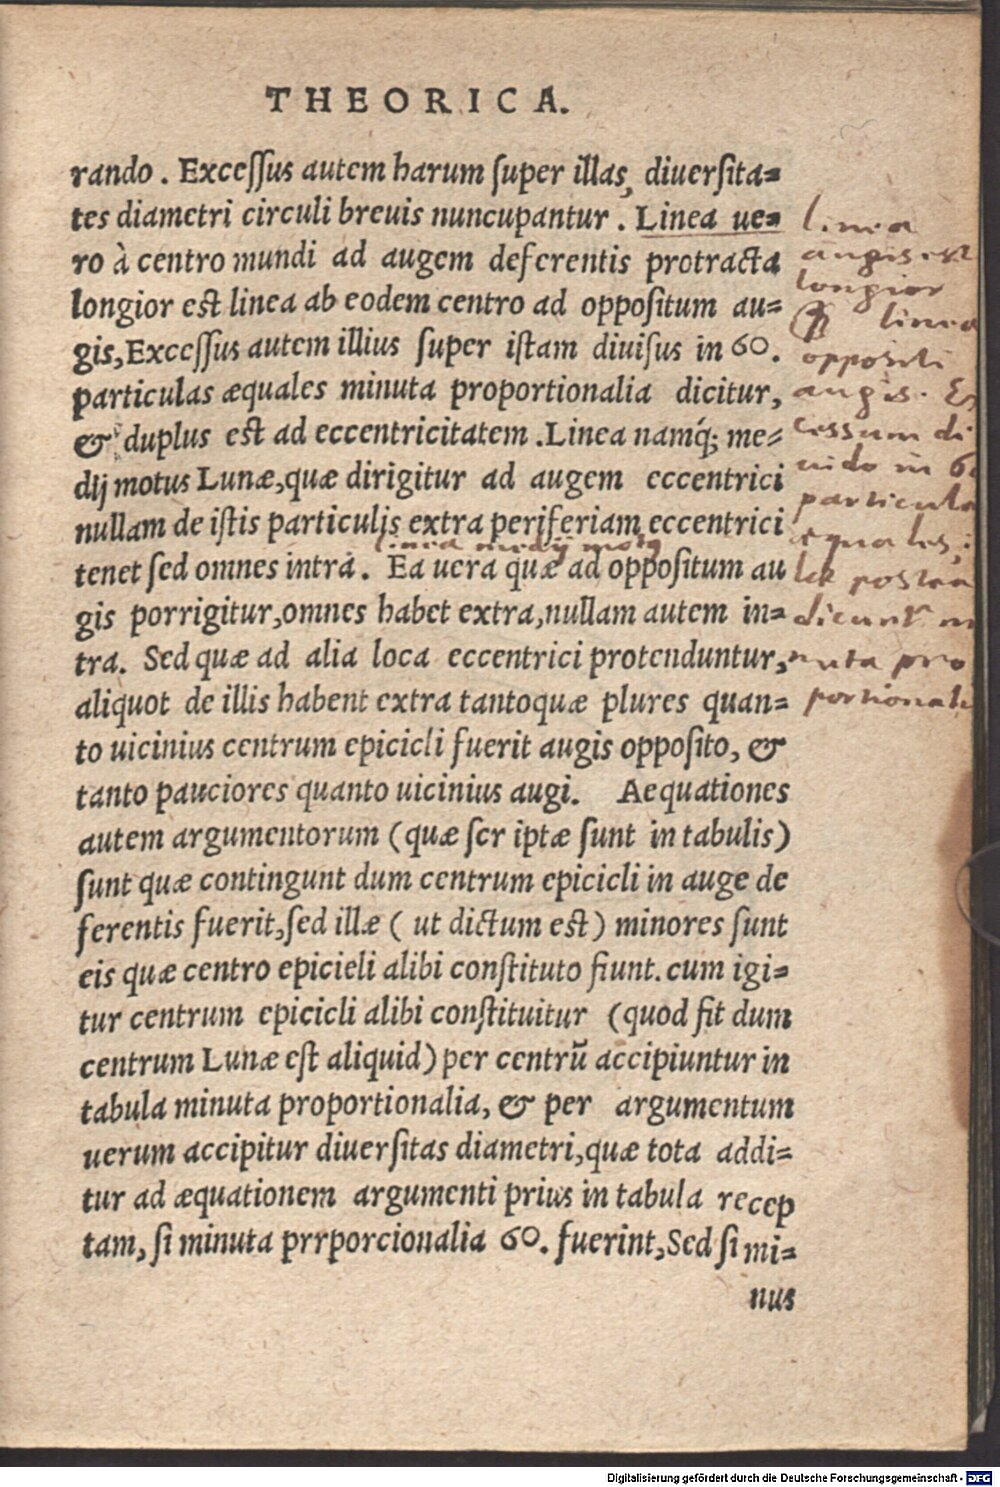 THEORICA.
rando. Excessus autem harum super illas, diuersita=
tes diametri circuli breuis nuncupantur. Linea ue=
ro à centro mundi ad augem deferentis protracta
longior est linea ab eodem centro ad oppositum au=
gis, Excessus autem illius super istam diuisus in 60.
particulas æquales minuta proportionalia dicitur,
& duplus est ad eccentricitatem. Linea namq; me=
dij motus Lunæ, quæ dirigitur ad augem eccentrici
nullam de istis particulis extra periferiam eccentrici
linea medij motus
tenet sed omnes intrà. Ea uera quæ ad oppositum au
gis porrigitur, omnes habet extra, nullam autem in=
tra. Sed quæ ad alia loca eccentrici protenduntur,
aliquot de illis habent extra tantoquæ plures quan=
to uicinius centrum epicicli fuerit augis opposito, &
tanto pauciores quanto uicinius augi. Aequationes
autem argumentorum (quæ scr iptæ sunt in tabulis)
sunt quæ contingunt dum centrum epicicli in auge de
ferentis fuerit, sed illæ ( ut dictum est) minores sunt
eis quæ centro epicieli alibi constituto fiunt. cum igi=
tur centrum epicicli alibi constituitur (quod fit dum
centrum Lunæ est aliquid) per centrū accipiuntur in
tabula minuta proportionalia, & per argumentum
uerum accipitur diuersitas diametri, quæ tota addi=
tur ad æquationem argumenti prius in tabula recep
tam, si minuta prrporcionalia 60. fuerint, Sed si mi=
nus
linea
augis est
longior
linea
oppositi
augis. Ex
cessum di
uido in 60
particula
equales
dicunt mi
nuta pro
portionali
Digitalisierung gefördert durch die Deutsche Forschungsgemeinschaft - DFG